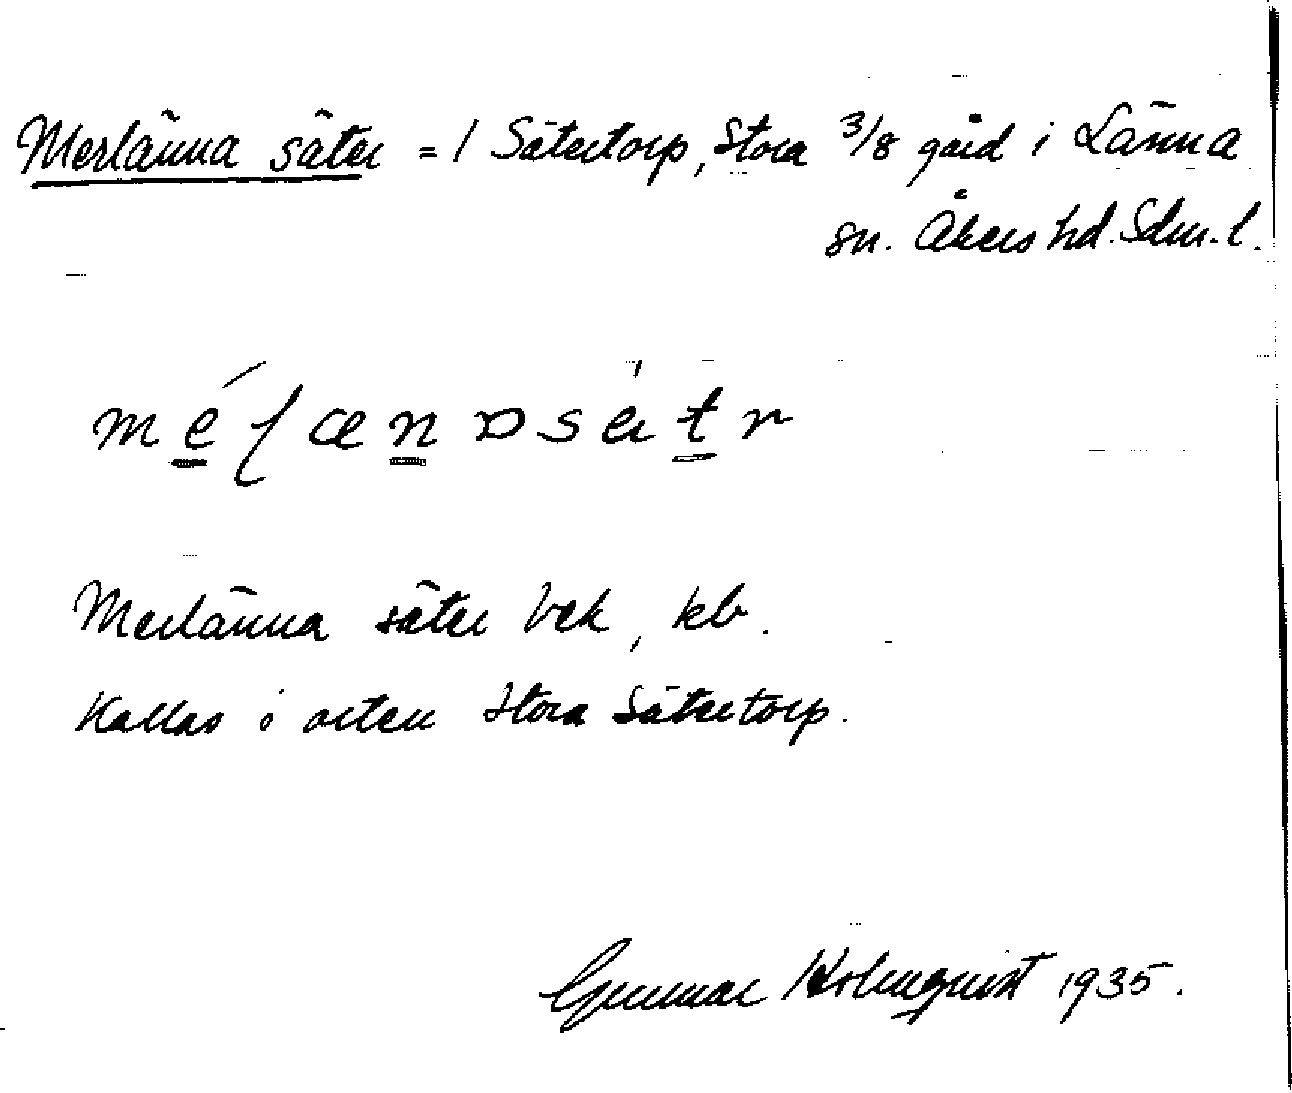 Merlänna säter = / Sätertorp, Stora 3/8 gård i Länna
sn. Åkers hd. Sdm. l.
Merlänna säter bek, kb.
Kallas i orten Stora Sätertorp.
Gunnar Holmquist 1935.